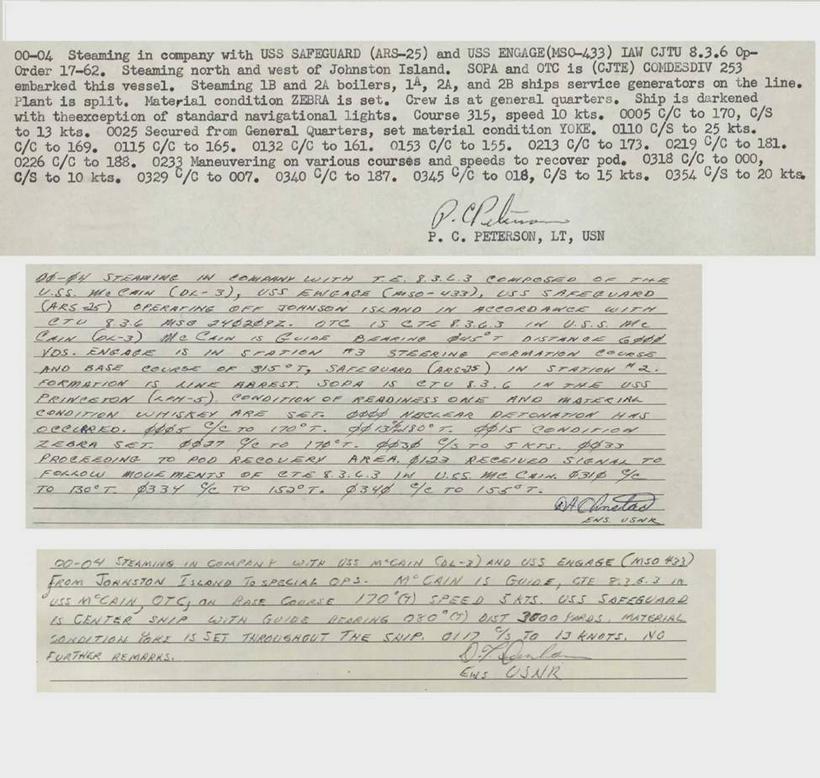 00-04 Steaming in company with USS SAFEGUARD (ARS-25) and USS ENGAGE(MSO-433) IAW CJTU 8.3.6 Op-
Order 17-62. Steaming north and west of Johnston Island. SOPA and OTC is (CJTE) COMDESDIV 253
embarked this vessel. Steaming 1B and 2A boilers, 1A, 2A, and 2B ships service generators on the line.
Plant is split. Material condition ZEBRA is set. Crew is at general quarters. Ship is darkened
with theexception of standard navigational lights. Course 315, speed 10 kts. 0005 C/C to 170, C/S
to 13 kts. 0025 Secured from General Quarters, set material condition YOKE. 0110 C/S to 25 kts.
C/C to 169. 0115 C/C to 165. 0132 C/C to 161. 0153 C/C to 155. 0213 C/C to 173. 0219 C/C to 181.
0226 C/C to 188. 0233 Maneuvering on various courses and speeds to recover pod. 0318 C/C to 000,
C/S to 10 kts. 0329 C/C to 007. 0340 C/C to 187. 0345 C/C to 018, C/S to 15 kts. 0354 C/S to 20 kts.
P. C. Peterson
P. C. PETERSON, LT, USN
00-04 STEAMING IN COMPANY WITH T.E. 8.3.6.3 COMPOSED OF THE
U.S.S. McCAIN (DL-3), USS ENGAGE (MSO-433), USS SAFEGUARD
(ARS-25) OPERATING OFF JOHNSON ISLAND IN ACCORDANCE WITH
CTU 8.3.6 MSG 240209Z. OTC IS CTE 8.3.6.3 IN U.S.S. Mc
CAIN (DL-3) McCAIN IS GUIDE BEARING 045°T DISTANCE 6000
YDS. ENGAGE IS IN STATION #3 STEERING FORMATION COURSE
AND BASE COURSE OF 315°T, SAFEGUARD (ARS-25) IN STATION #2.
FORMATION IS LINE ABREST. SOPA IS CTU 8.3.6 IN THE USS
PRINCETON (LPH-5). CONDITION OF READINESS ONE AND MATERIAL
CONDITION WHISKEY ARE SET. 0000 NUCLEAR DETONATION HAS
OCCURED. 0005 C/C TO 170°T. 0013 C/C 180°T. 0015 CONDITION
ZEBRA SET. 0027 C/C TO 170°T. 0030 C/S TO 5 KTS. 0033
PROCEEDING TO POD RECOVERY AREA. 0123 RECEIVED SIGNAL TO
FOLLOW MOVEMENTS OF CTE 8.3.6.3 IN U.S.S. McCAIN. 0310 C/C
TO 130°T. 0334 C/C TO 152°T. 0340 C/C TO 155°T.
ENS. USNR
00-04 STEAMING IN COMPANY WITH USS McCAIN (DL-3) AND USS ENGAGE (MSO 433)
FROM JOHNSTON ISLAND TO SPECIAL OPS. McCAIN IS GUIDE, CTE 8.3.6.3 IN
USS McCAIN, OTC, ON BASE COURSE 170°(T) SPEED 5 KTS. USS SAFEGUARD
IS CENTER SHIP WITH GUIDE BEARING 080°(T) DIST 3000 YARDS. MATERIAL
CONDITION YOKE IS SET THROUGHOUT THE SHIP. 0117 C/S TO 13 KNOTS. NO
FURTHER REMARKS.
ENS USNR